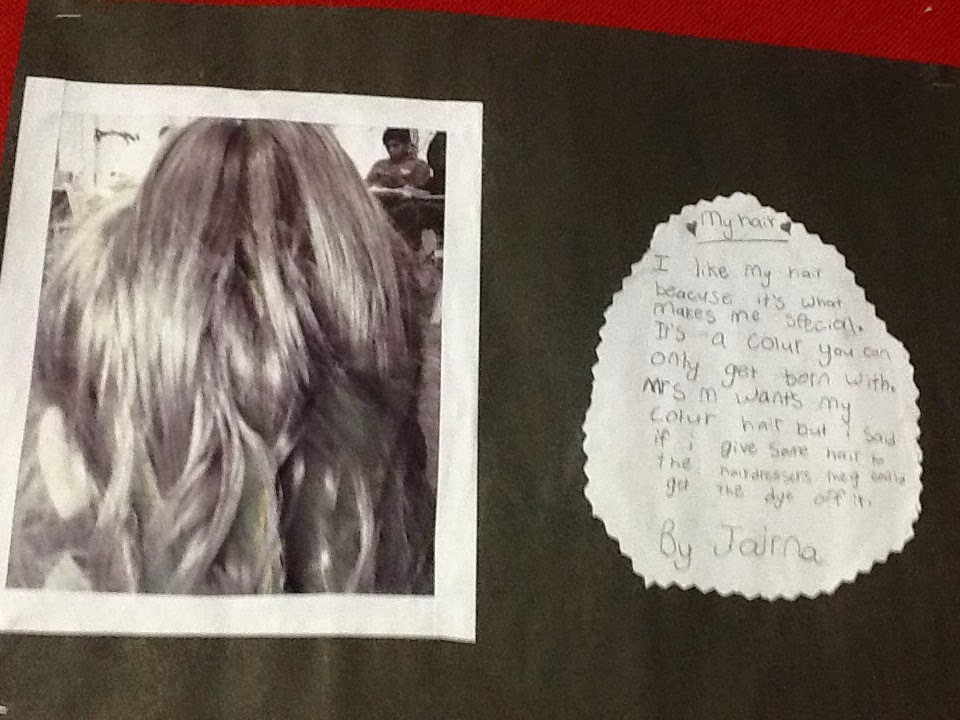 My hair
I like my hair
beacuse it's what
makes me special.
It's a colur you can
only get born with.
Mrs m wants my
colur hair but i sad
if i give some hair to
the hairdressers they could
get the dye off it.
By Jairna